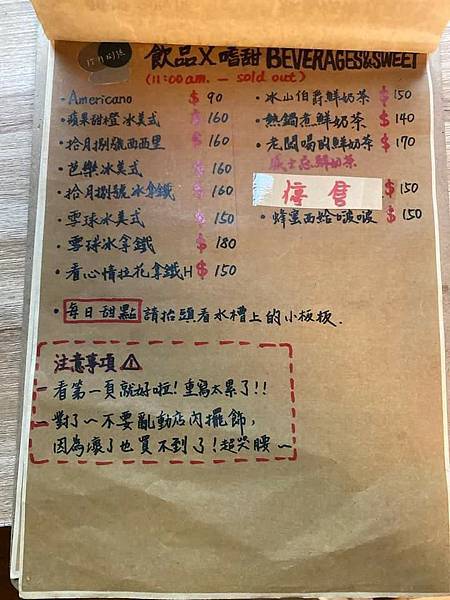 飲品X嗜甜 BEVERAGES&SWEET
(11:00am. — sold out)
・Americano $ 90
・蘋果甜橙冰美式 $ 160
・拾月捌號西西里 $ 160
・芭樂冰美式 $ 160
・拾月捌號冰拿鐵 $ 160
・雪球冰美式 $ 150
・雪球冰拿鐵 $ 180
・看心情拉花拿鐵H $ 150
・冰山伯爵鮮奶茶 $ 150
・熱鍋煮鮮奶茶 $ 140
・老闆喝的鮮奶茶 $ 170
威士忌鮮奶茶
停售 $ 150
・蜂蜜西給啵啵 $ 150
・每日甜點 請抬頭看水槽上的小板板.
注意事項⚠
— 看第一頁就好啦!重寫太累了!!
— 對了~不要亂動店內擺飾,
因為壞了也買不到了!超哭腰~